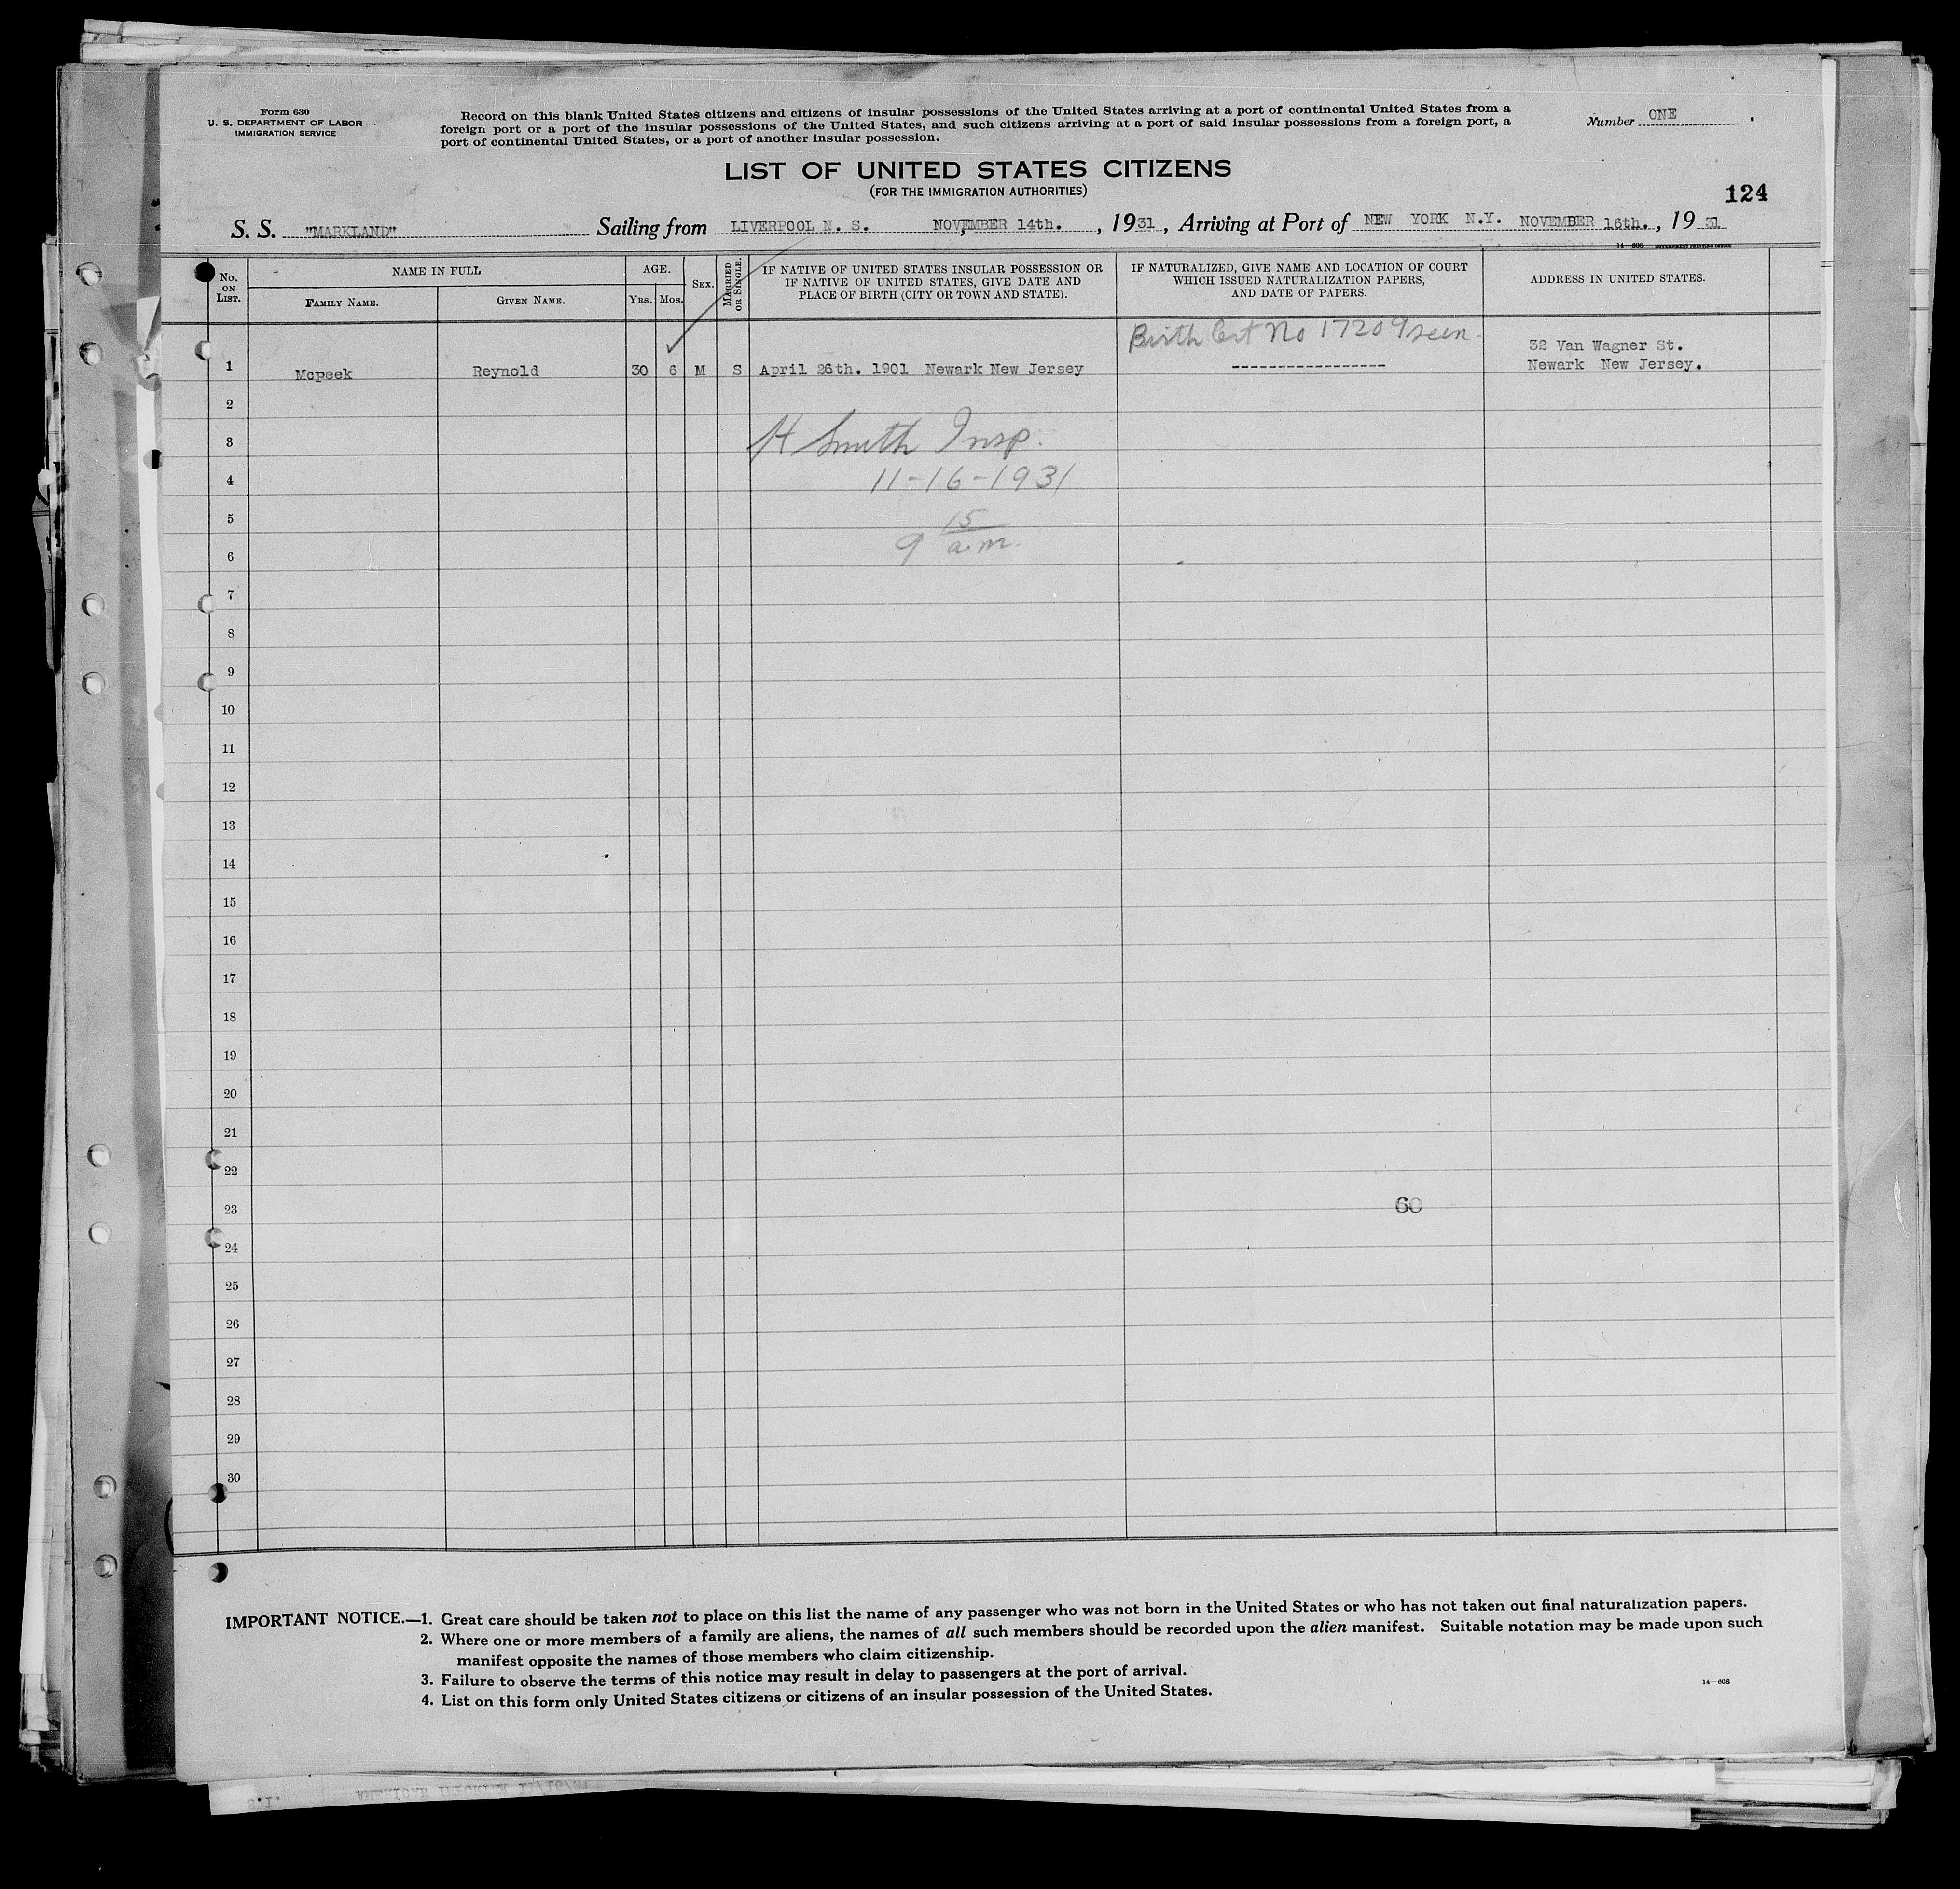 Form 630
U. S. DEPARTMENT OF LABOR
IMMIGRATION SERVICE
Record on this blank United States citizens and citizens of insular possessions of the United States arriving at a port of continental United States from a
foreign port or a port of the insular possessions of the United States, and such citizens arriving at a port of said insular possessions from a foreign port, a
port of continental United States, or a port of another insular possession.
Number ONE
LIST OF UNITED STATES CITIZENS
(FOR THE IMMIGRATION AUTHORITIES)
124
S. S. "MARKLAND" Sailing from LIVERPOOL N. S. NOVEMBER 14th. , 1931 , Arriving at Port of NEW YORK N.Y. NOVEMBER 16th. , 19 31
14—608 GOVERNMENT PRINTING OFFICE
No. ON LIST. NAME IN FULL FAMILY NAME. GIVEN NAME. AGE. YRS. MOS. SEX. MARRIED OR SINGLE.
IF NATIVE OF UNITED STATES INSULAR POSSESSION OR
IF NATIVE OF UNITED STATES, GIVE DATE AND
PLACE OF BIRTH (CITY OR TOWN AND STATE).
IF NATURALIZED, GIVE NAME AND LOCATION OF COURT
WHICH ISSUED NATURALIZATION PAPERS,
AND DATE OF PAPERS.
ADDRESS IN UNITED STATES.
Birth Cert No 17209 seen
32 Van Wagner St.
1 Mcpeek Reynold 30 6 M S April 26th. 1901 Newark New Jersey ---------------- Newark New Jersey.
2
3 H Smith Insp.
4 11-16-1931
5 15
6 9 a.m.
7
8
9
10
11
12
13
14
15
16
17
18
19
20
21
22
23 60
24
25
26
27
28
29
30
IMPORTANT NOTICE.—1. Great care should be taken not to place on this list the name of any passenger who was not born in the United States or who has not taken out final naturalization papers.
2. Where one or more members of a family are aliens, the names of all such members should be recorded upon the alien manifest. Suitable notation may be made upon such
manifest opposite the names of those members who claim citizenship.
3. Failure to observe the terms of this notice may result in delay to passengers at the port of arrival.
4. List on this form only United States citizens or citizens of an insular possession of the United States.
14—608